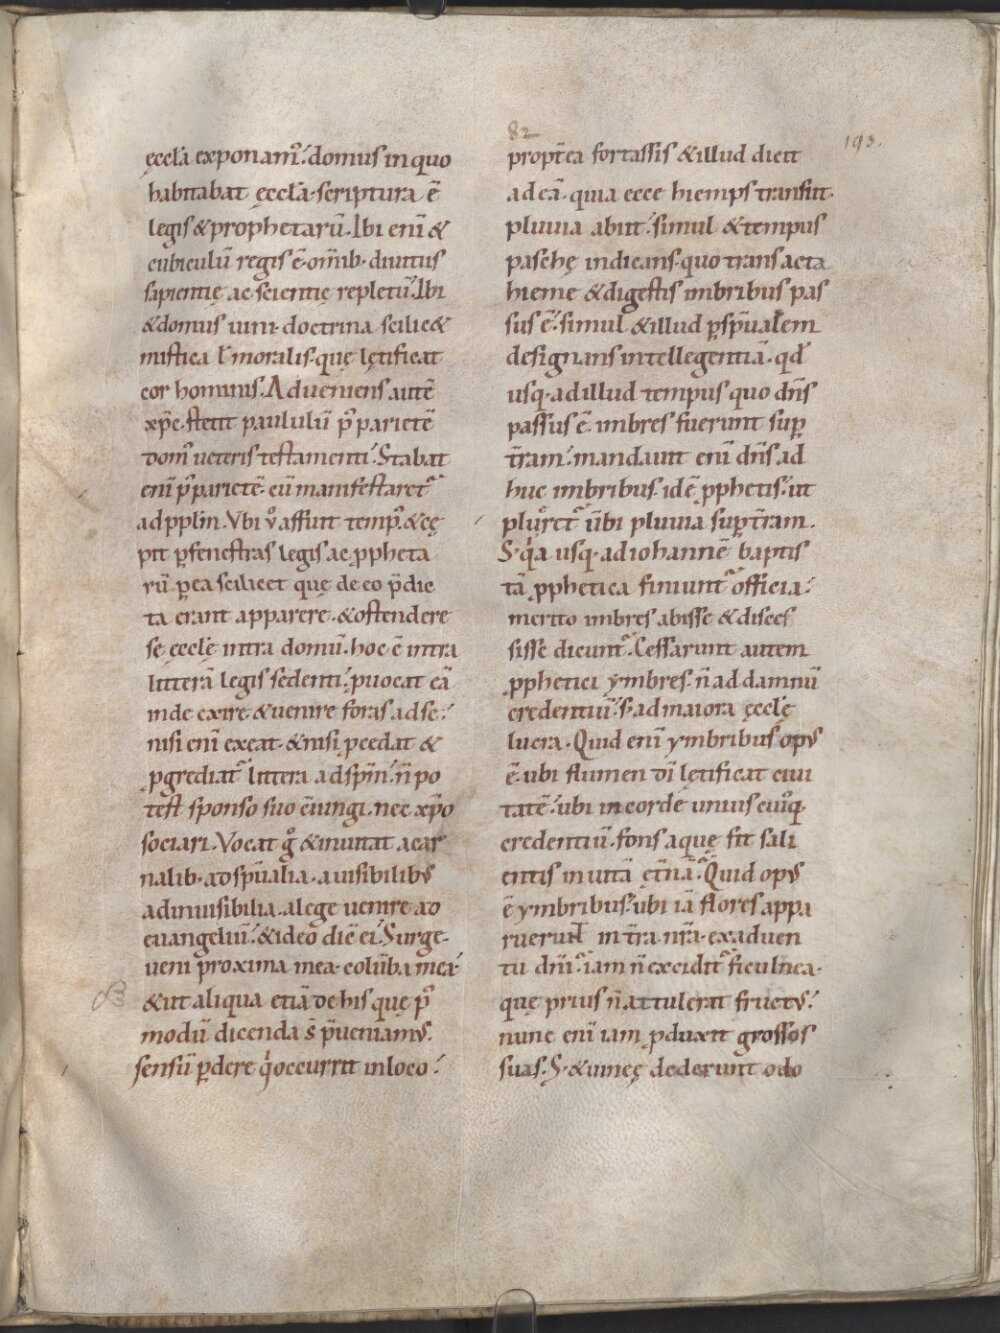 82
193.
ęccl̄a exponam᷒. domus in quo
habitabat ęccl̄a. scriptura ē
legis & prophetarū. Ibi enī &
cubiculū regis ē. om̄ib. diuitiis
sapientię ac scientię repletū. Ibi
& domus uini. doctrina scilic&
mistica ł moralis. quę lętificat
cor hominis. Adueniens autē
xp̄c. stetit paululū p᷒ parietē
dom᷒ ueteris testamenti. Stabat
enī p᷒ parietē. cū manifestaret᷑
ad pplm̄. Vbi ů affuit temp᷒. & cę
pit ꝑ fenestras legis ac ꝓpheta
rū. ꝑ ea scilicet quę de eo p̄dic
ta erant apparere. & ostendere
se ęccłę intra domū. hoc ē intra
litterā legis sedenti. ꝓuocat eā
inde exire. & uenire foras ad se.
nisi enī exeat. & nisi ꝓcedat &
ꝓgrediat᷑ littera ad sp̄m. n̄ po
test sponso suo c̄iungi. nec xp̄o
sociari. Vocat g̊ & inuitat a car
nalib. ad sp̄ualia. a uisibilibꝰ
ad inuisibilia. a lege uenire ad
euangeliū. & ideo dic̄ ei. Surge.
ueni proxima mea. colūba mea.
& ut aliqua etiā de his quę p᷒
modū dicenda s̄ p̄ueniamꝰ.
sensū ꝑdere q̇ occurrit in loco.
propt̄ea fortassis & illud dicit
ad eā. quia ecce hiemps transiit.
pluuia abiit. simul & tempus
paschę indicans. quo transacta
hieme & digestis imbribus pas
sus ē. simul & illud ꝑ sp̄ualem
designans intellegentiā. qd̄
usq. ad illud tempus quo dn̄s
passus ē. imbres fuerunt suꝑ
t̄ram. mandauit enī dn̄s ad
huc imbribus. id ē ꝓphetis. ut
plůret᷑ ūbi pluuia suꝑ t̄ram.
S; q̇a usq. ad iohannē baptis
tā ꝓphetica finiunt᷑ officia.
merito imbres abisse & disces
sisse dicunt᷑. Cessarunt autem
ꝓphetici ymbres. n̄ ad damnū
credentiū. s; ad maiora ęccłę
lucra. Quid enī ymbribus opꝰ
ē. ubi flumen dī lętificat ciui
tatē. ubi in corde unius cui᷒q;
credentiū. fons aquę fit sali
entis in uitā ęt̄nā. Quid opꝰ
ē ymbribus. ubi iā flores appa
ruerunt in t̄ra nr̄a. ex aduen
tu dn̄i. iam n̄ excidit᷑ ficulnea.
quę prius n̄ attulerat fructꝰ.
nunc enī iam ꝓduxit grossos
suas. S; & uineę dederunt odo